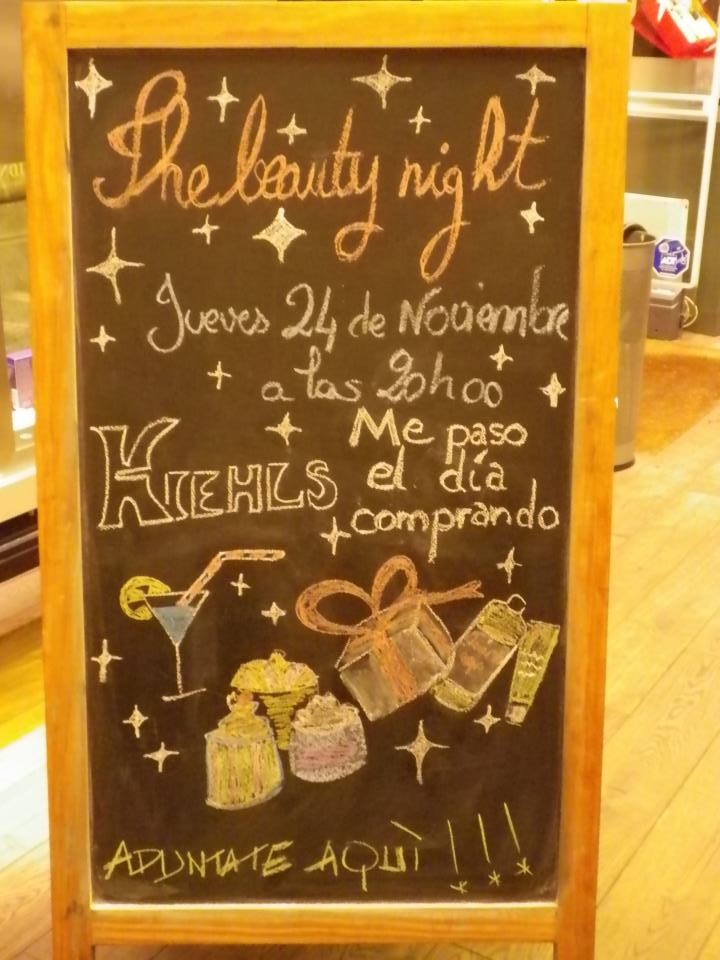 The beauty night
Jueves 24 de Noviembre
a las 20h00
KIEHLS
Me paso
el día
comprando
APUNTATE AQUÌ !!!
ADT